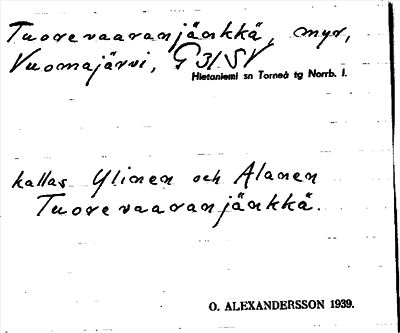 Tuorevaaranjänkkä, myr,
Vuomajärvi, G 31 SV
Hietaniemi sn Torneå tg Norrb. l.
kallas Ylinen och Alanen
Tuorevaaranjänkkä.
O. ALEXANDERSSON 1939.